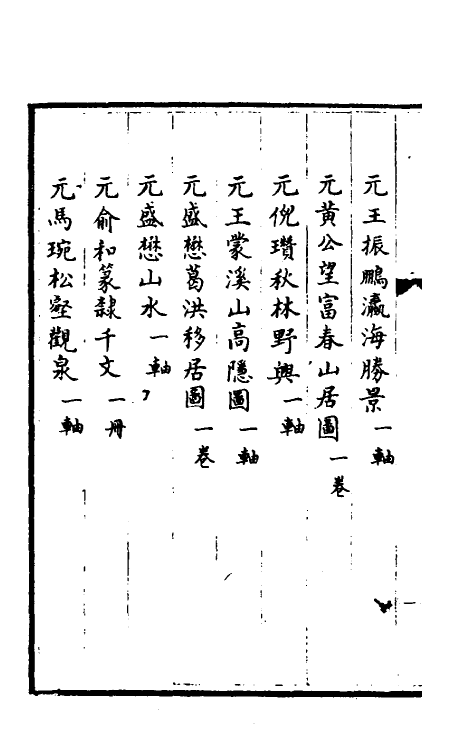 元王振鵬瀛海勝景一軸
元黃公望富春山居圖一卷
元倪瓚秋林野興一軸
元王蒙溪山高隱圖一軸
元盛懋葛洪移居圖一卷
元盛懋山水一軸
元俞和篆隸千文一冊
元馬琬松壑觀泉一軸